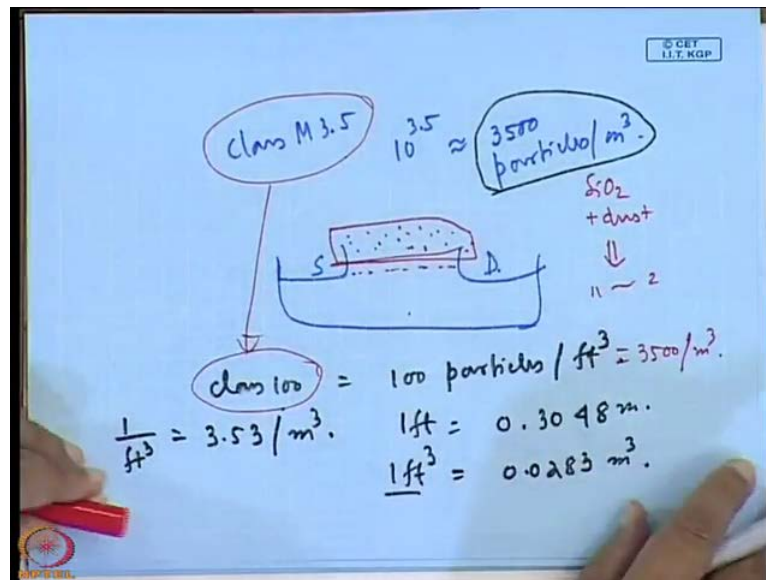 © CET
I.I.T. KGP
class M 3.5
10^3.5 ≈ 3500 particles/m³.
SiO₂
+ dust
⇓
S
D.
class 100 = 100 particles / ft³ = 3500/m³.
1/ft³ = 3.53/m³.
1ft = 0.3048 m.
1ft³ = 0.0283 m³.
NPTEL